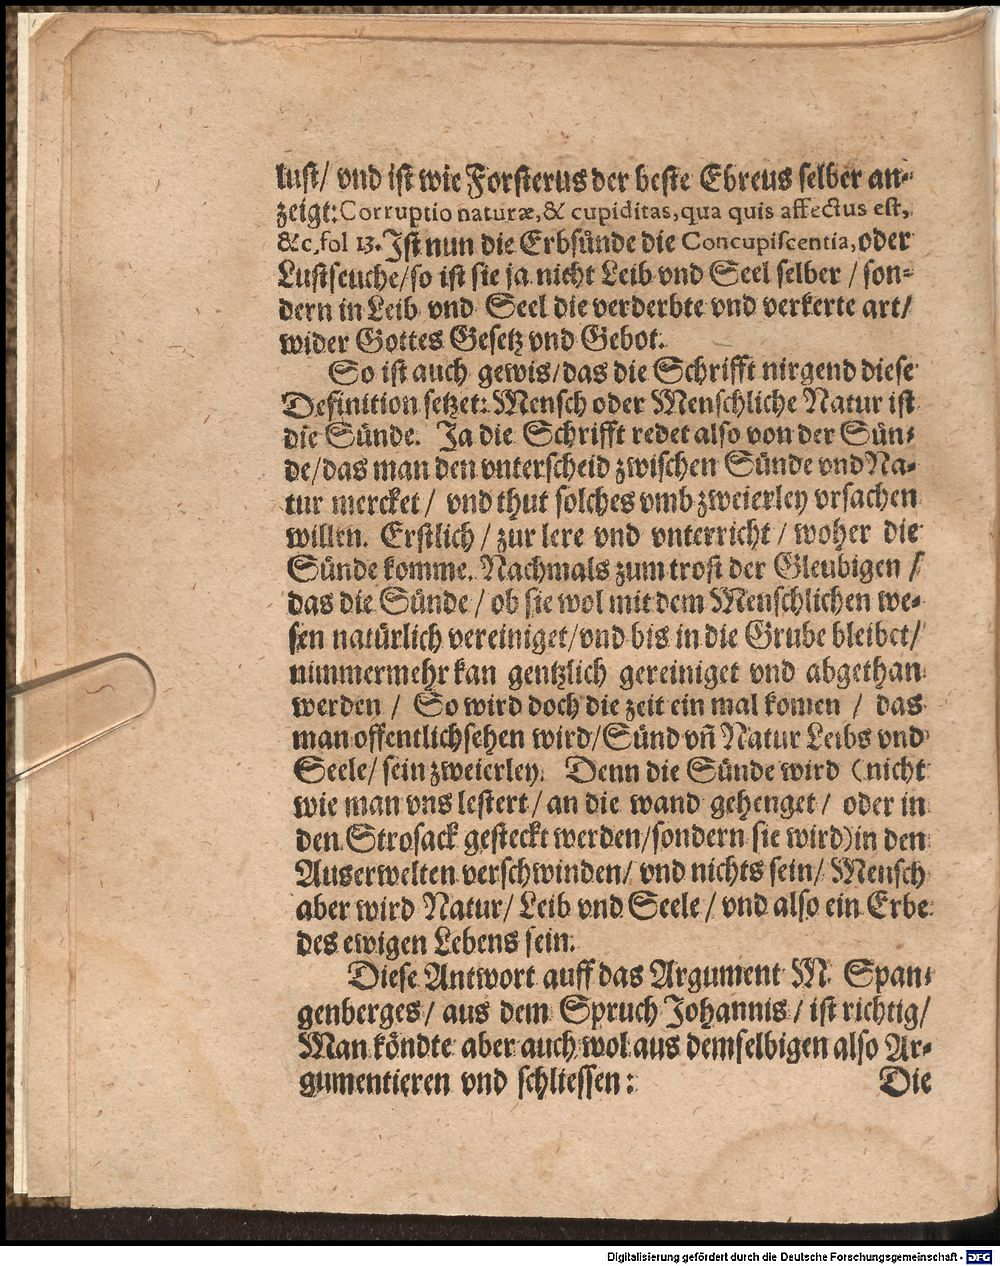 lust/ vnd ist wie Forsterus der beste Ebreus selber an-
zeigt: Corruptio naturæ, & cupiditas, qua quis affectus est,
&c. fol 13. Ist nun die Erbsünde die Concupiscentia, oder
Lustseuche/ so ist sie ja nicht Leib vnd Seel selber / son-
dern in Leib vnd Seel die verderbte vnd verkerte art/
wider Gottes Gesetz vnd Gebot.
So ist auch gewis/ das die Schrifft nirgend diese
Definition setzet: Mensch oder Menschliche Natur ist
die Sünde. Ja die Schrifft redet also von der Sün-
de/ das man den vnterscheid zwischen Sünde vnd Na-
tur mercket / vnd thut solches vmb zweierley vrsachen
willen. Erstlich / zur lere vnd vnterricht / woher die
Sünde komme. Nachmals zum trost der Gleubigen /
das die Sünde / ob sie wol mit dem Menschlichen we-
sen natürlich vereiniget/ vnd bis in die Grube bleibet/
nimmermehr kan gentzlich gereiniget vnd abgethan
werden / So wird doch die zeit ein mal komen / das
man offentlich sehen wird/ Sünd vñ Natur Leibs vnd
Seele/ sein zweierley. Denn die Sünde wird (nicht
wie man vns lestert / an die wand gehenget / oder in
den Strosack gesteckt werden/ sondern sie wird) in den
Auserwelten verschwinden/ vnd nichts sein/ Mensch
aber wird Natur/ Leib vnd Seele / vnd also ein Erbe
des ewigen Lebens sein.
Diese Antwort auff das Argument M. Span-
genberges / aus dem Spruch Johannis / ist richtig/
Man köndte aber auch wol aus demselbigen also Ar-
gumentieren vnd schliessen:
Die
Digitalisierung gefördert durch die Deutsche Forschungsgemeinschaft - DFG